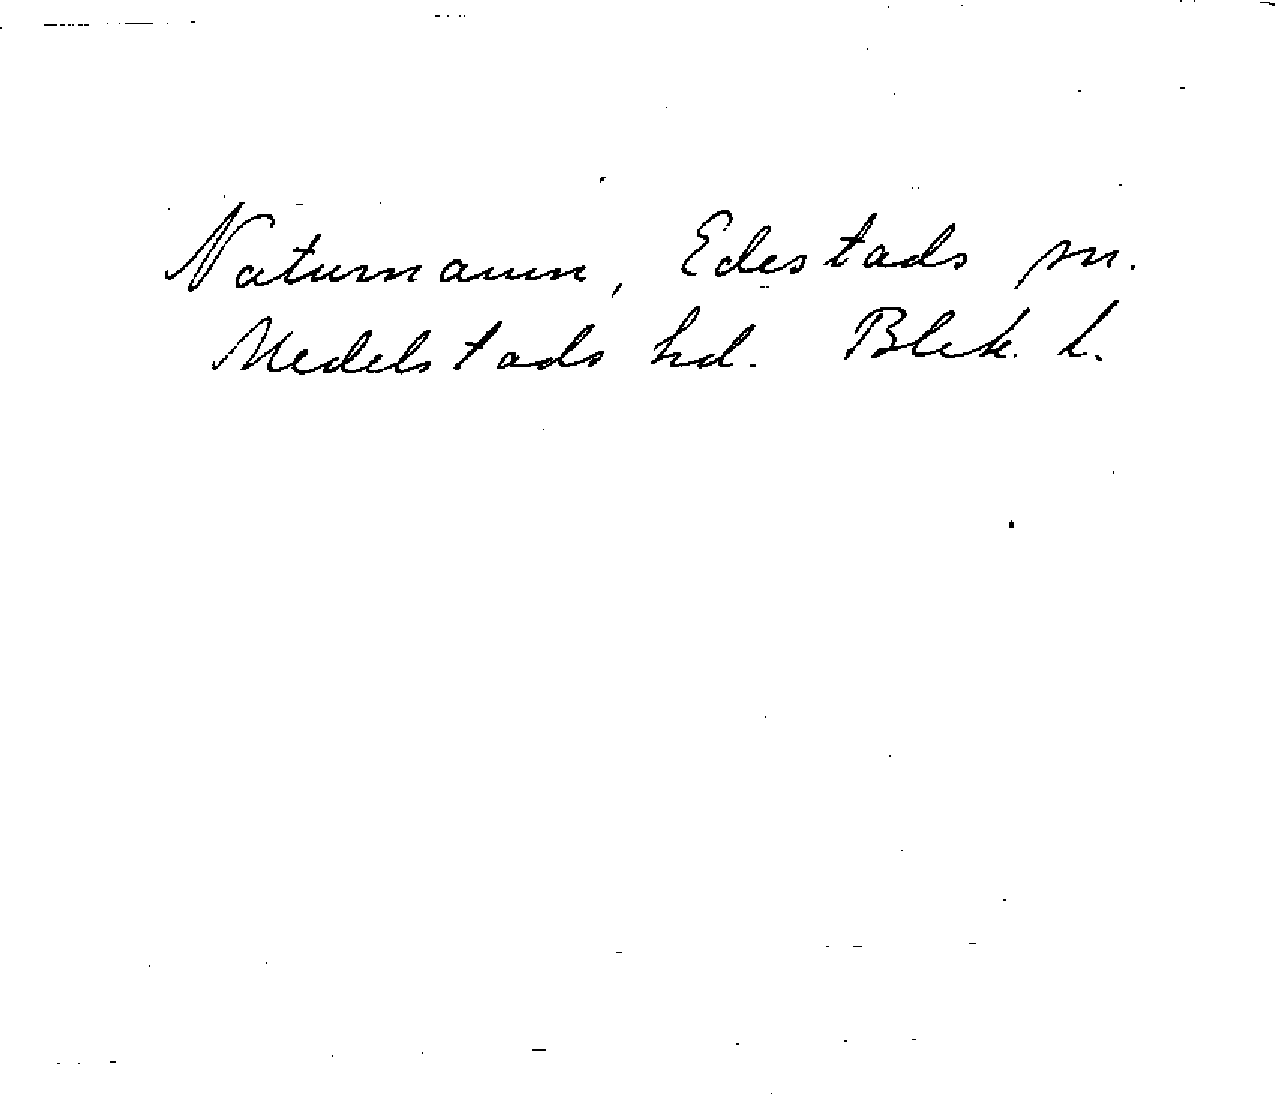 Naturnamn, Edestads sn.
Medelstads hd. Blek. l.